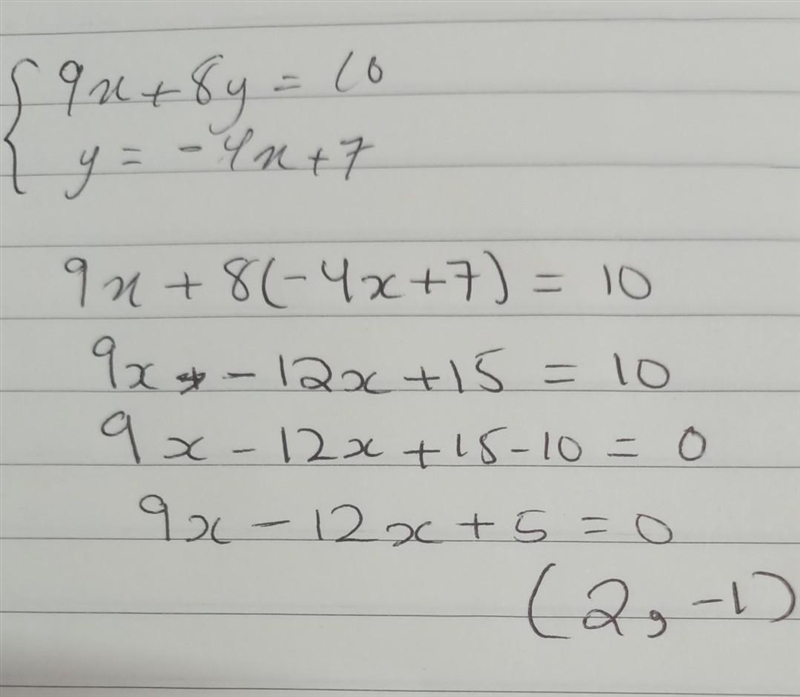 9x + 8y = 10
y = -4x + 7
9x + 8(-4x + 7) = 10
9x - 12x + 15 = 10
9x - 12x + 15 - 10 = 0
9x - 12x + 5 = 0
(2, -1)